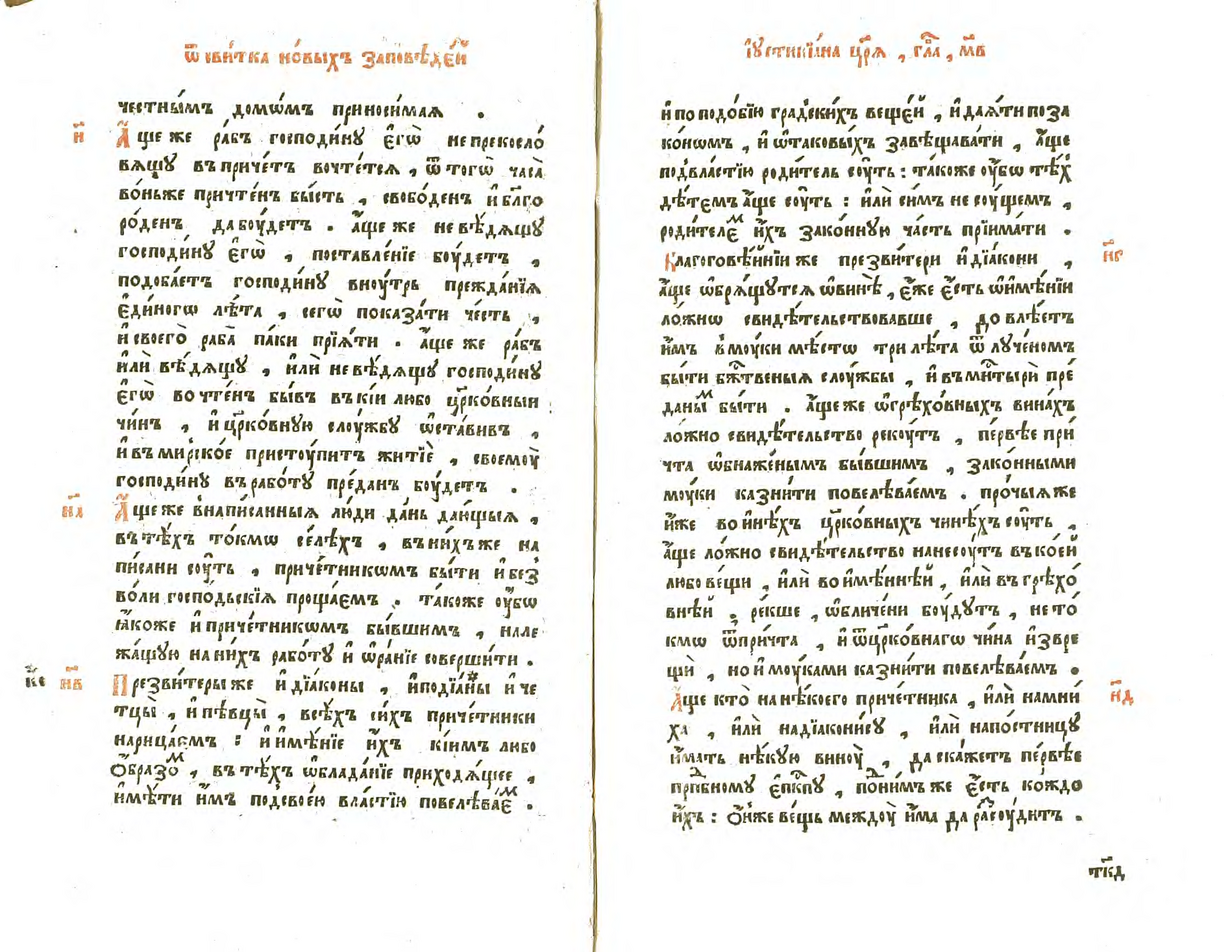 ѿ сви́тка но́выхъ за́повѣдє́й
честны́мъ домѡ́мъ приноси́мая .
н҃ А҆́ще же ра́бъ господи́ну є҆гѡ̀ непрекосло́
вящу въпричє́тъ вочтє́тся , ѿ тогѡ̀ часа̀
во́ньже причте́нъ бы́сть , свобо́денъ и҆бл҃го
ро́денъ дабоу́детъ . а҆́ще же невѣ́дящу
господи́ну є҆гѡ̀ , поставле́нїе боу́детъ ,
подоба́етъ господи́ну вноу́трь преждан́їя
є҆ди́ногѡ лѣ́та , сегѡ̀ показа́ти че́сть ,
и҆ своего̀ раба̀ па́ки прїя́ти . а҆́ще же ра́бъ
и҆лѝ вѣ́дящу , и҆лѝ невѣ́дящу господи́ну
є҆гѡ̀ вочте́нъ бы́въ въкі́и любо цр҃ко́вныи
чи́нъ , и҆цр҃ко́вную слоу́жбу ѡ҆ста́вивъ ,
и҆ въмирско́е пристоу́питъ житїѐ , своемоу̀
господи́ну върабо́ту пре́данъ боу́детъ .
н҃а А҆́ще же внапи́санныя лю́ди да́нь даю́щыя ,
въ тѣ́хъ то́кмѡ се́лѣхъ , въни́хъже на
пи́сани соу́ть , приче́тникѡмъ бы́ти и҆без̾
во́ли госпо́дьскїя проща́емъ . та́коже оу҆́бѡ
ꙗ҆́коже и҆приче́тникѡмъ бы́вшимъ , нале
жа́щую нани́хъ рабо́ту и҆ ѡ҆ра́нїе соверши́ти .
к҃є н҃в Презви́теры же и҆дїа́коны , и҆подїа́ны и҆ че
тцы̀ , и҆пѣвцы̀ , всѣ́хъ си́хъ приче́тники
нарица́емъ : и҆и҆мѣ́нїе и҆́хъ кі́имъ либо
о҆́бразоⷨ , въ тѣ́хъ ѡ҆блада́нїе приходя́щее ,
и҆мѣ́ти и҆̀мъ подсвое́ю вла́стїю повелѣва́еⷨ .
Іу҆стинїа́на цр҃я̀ , гл҃а̀ , м҃в
и҆ по подо́бїю гра́дскихъ веще́й , и҆дая́ти поза
ко́нѡмъ , и҆ ѡ҆таковы́хъ завѣщава́ти , а҆́ще
подвла́стїю роди́тель соу́ть : та́коже оу҆́бѡ тѣ́х̾
дѣ́темъ а҆́ще соу́ть : и҆лѝ си́мъ не соу́щемъ ,
роди́телеⷨ и҆́хъ зако́нную ча́сть прїима́ти .
н҃г Благоговѣ́йнїи же презви́тери и҆дїа́кони ,
а҆́ще ѡ҆бря́щутся ѡ҆винѣ̀ , є҆́же є҆́сть ѡ҆и҆мѣ́нїи
ло́жнѡ свидѣ́тельствовавше , довлѣ́етъ
и҆̀мъ в мо́уки мѣ́стѡ три лѣ́та ѿ лу́ченомъ
бы́ти бж҃твеныя слоу́жбы , и҆ въмн҃тырѝ пре́
даныⷨ бы́ти . а҆́ще же ѡ҆грѣхо́вныхъ вина́хъ
ло́жно свидѣ́тельство рекоу́тъ , пе́рвѣе при́
чта ѡ҆бнаже́нымъ бы́вшимъ , зако́нными
мо́уки казни́ти повелѣва́емъ . про́чыяже
и҆́же во и҆нѣ́хъ цр҃ко́вныхъ чинѣ́хъ соу́ть ,
а҆́ще ло́жно свидѣ́тельство нанесоу́тъ въ ко́ей
любо ве́щи , и҆лѝ во и҆мѣ́ннѣй , и҆лѝ въ грѣхо́
внѣй , ре́кше , ѡ҆бличе́ни боу́дутъ , нето́
кмѡ ѿпри́чта , и҆ ѿцр҃ко́внагѡ чи́на и҆зве́р
щи , но и҆ моу́ками казни́ти повелѣва́емъ .
н҃д А҆́ще кто̀ нанѣ́коего приче́тника , и҆лѝ намни́
ха , и҆лѝ надїа́конису , и҆лѝ напо́стницу
и҆́мать нѣ́кую виноу̀ , да ска́жетъ пе́рвѣе
прпⷣбному є҆пⷭкпу , пони́мъ же є҆́сть ко́ждо
и҆́хъ : о҆́нже ве́щь междоу̀ и҆́ма да разсоу́дитъ .
тк҃д